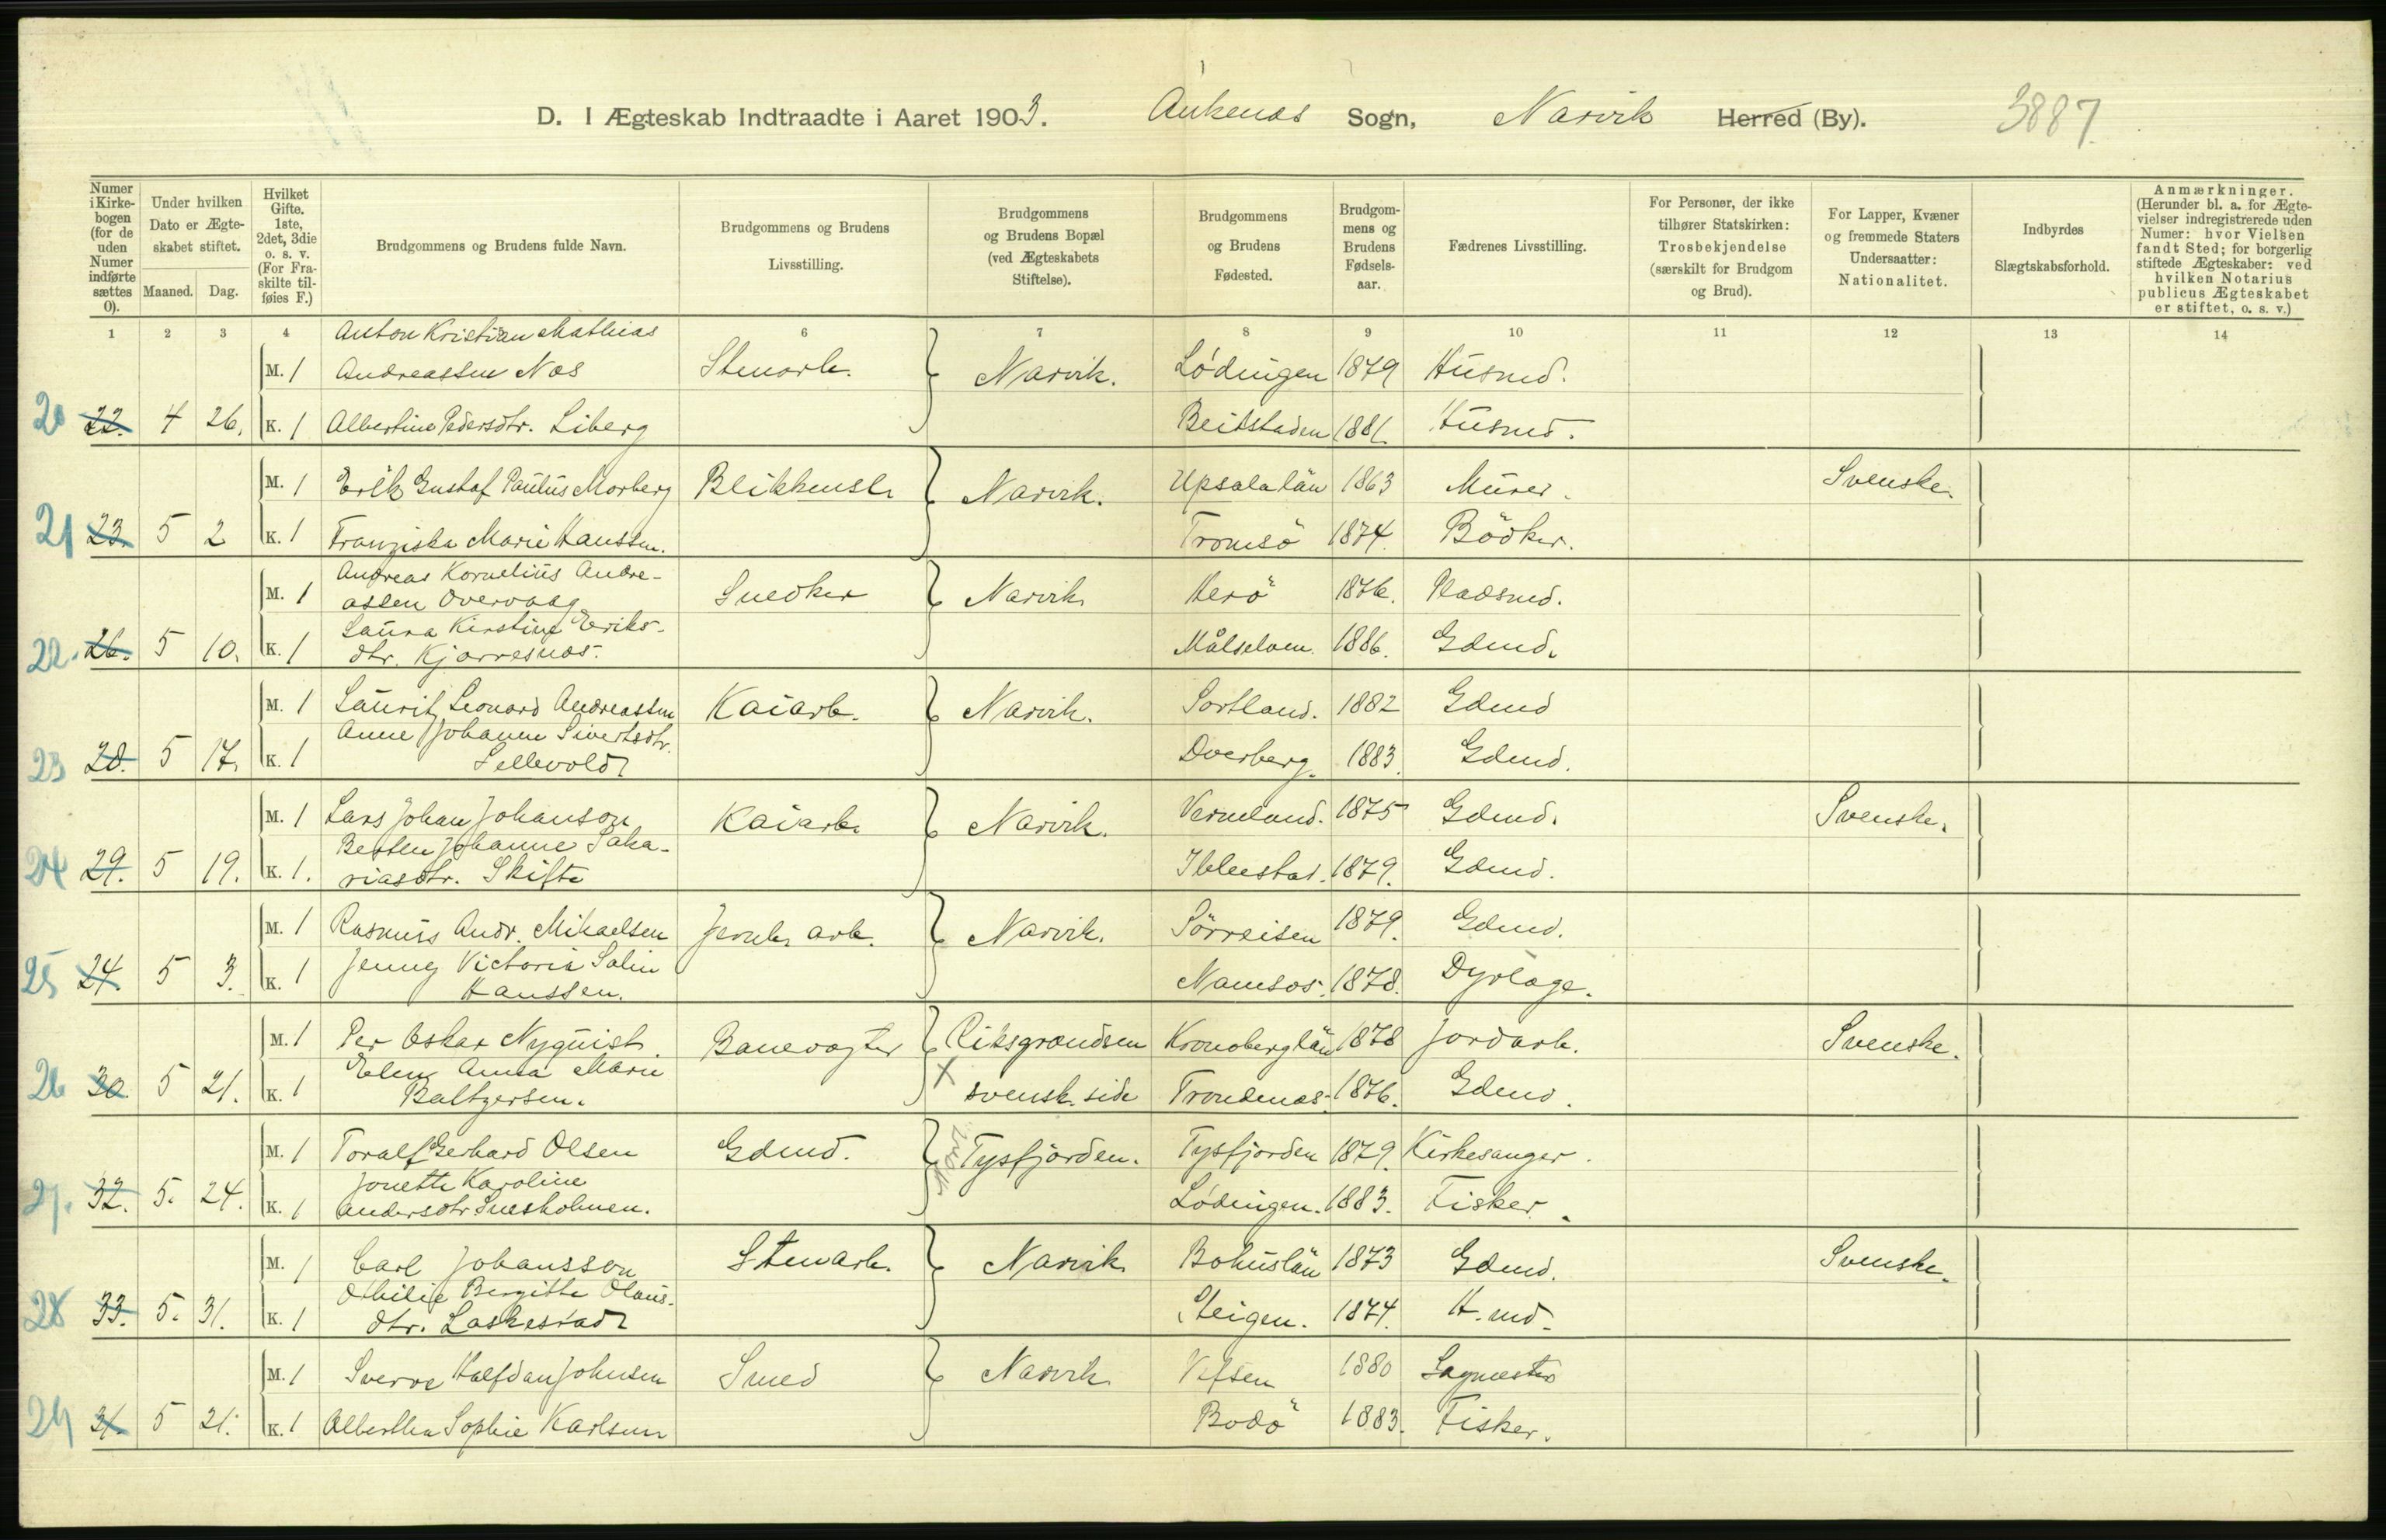 D. I Ægteskab Indtraadte i Aaret 1903. Ankenæs Sogn, Narvik Herred (By). 3887.
Numer i Kirkebogen (for de uden Numer indførte sættes 0).
Under hvilken Dato er Ægteskabet stiftet.
Maaned. Dag.
Hvilket Gifte. 1ste, 2det, 3die o. s. v. (For Fraskilte tilføies F.)
Brudgommens og Brudens fulde Navn.
Brudgommens og Brudens Livsstilling.
Brudgommens og Brudens Bopæl (ved Ægteskabets Stiftelse).
Brudgommens og Brudens Fødested.
Brudgommens og Brudens Fødselsaar.
Fædrenes Livsstilling.
For Personer, der ikke tilhører Statskirken: Trosbekjendelse (særskilt for Brudgom og Brud).
For Lapper, Kvæner og fremmede Staters Undersaatter: Nationalitet.
Indbyrdes Slægtskabsforhold.
Anmærkninger. (Herunder bl. a. for Ægtevielser indregistrerede uden Numer: hvor Vielsen fandt Sted; for borgerlig stiftede Ægteskaber: ved hvilken Notarius publicus Ægteskabet er stiftet, o. s. v.)
1 2 3 4 6 7 8 9 10 11 12 13 14
Anton Kristian Mathias
M. 1 Andreassen Næs Stenarb. Narvik. Lødingen 1879 Husmd.
20 22. 4 26. K. 1 Albertine Pedersdtr. Liberg Beitstaden 1881. Husmd.
M. 1 Erik Gustaf Paulus Morberg Blikkensl. Narvik. Upsala län 1863 Murer. Svenske.
21 23. 5 2 K. 1 Franziska Marie Hanssen. Tromsö 1874. Bödker.
Andreas Kornelius Andre-
M. 1 assen Overvaag Snedker Narvik Herö 1876. Pladsmd.
Laura Kirstine Eriks-
22. 26. 5 10. K. 1 dtr. Kjærresnæs. Målselven. 1886. Gdmd.
M. 1 Laurits Leonard Andreassen Kaiarb. Narvik. Sortland. 1882 Gdmd
Anne Johanne Sivertsdtr.
23 28. 5 17. K. 1 Sellevold Dverberg. 1883. Gdmd.
M. 1 Lars Johan Johanson Kaiarb. Narvik. Vermland. 1875 Gdmd. Svenske.
Berthe Johanne Saka-
24 29. 5 19. K. 1. riasdtr. Skifte Ibbestad. 1879. Gdmd.
M. 1 Rasmus Andr. Mikaelsen Jernb. arb. Narvik. Sörreisen 1879. Gdmd.
Jenny Victoria Salin
25 24. 5 3. K. 1 Hanssen. Namsos. 1878. Dyrlæge.
M. 1 Per Oskar Nyquist. Banevogter Riksgrændsen Kronoberg län 1878 Jordarb. Svenske.
Elen Anna Marie
26 30. 5 21. K. 1 Baltzersen. x svensk. side Trondenæs. 1876. Gdmd.
M. 1 Toralf Gerhard Olsen Gdmd. Tysfjorden. Tysfjorden 1879. Kirkesanger.
Jonette Karoline
27. 32. 5. 24. K. 1 Andersdtr Snesholmen. Lødingen. 1883. Fisker.
M. 1 Carl Johansson Stenarb. Narvik Bohuslän 1873 Gdmd. Svenske.
Othilie Bergitte Olaus-
28 33. 5. 31. K. 1 dtr. Laskestad Steigen. 1874. H.md.
M. 1 Sverre Halfdan Johnsen Smed Narvik Vefsen 1880 Sagmester
29 31. 5 21. K. 1 Alberthea Sophie Karlsen Bodö 1883. Fisker.